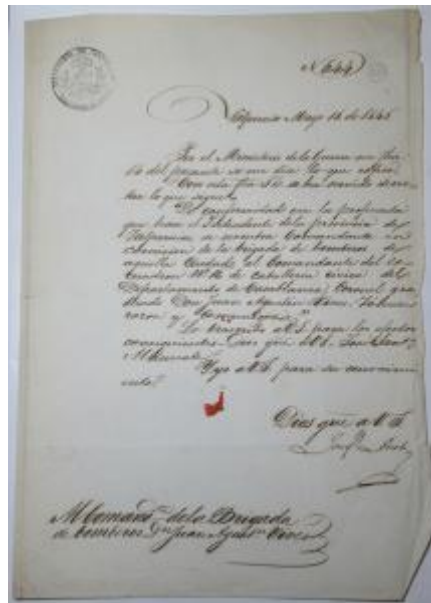 Nº 644
Valparaiso Mayo 16 de 1846
Por el Ministerio de la Guerra con fha
del presente se me dice lo que
Con esta fha S.E. se ha servido decre-
tar lo que sigue
De conformidad con la
que hace el Intendente de la provincia de
Valparaiso se nombra Comandante en
comision de la brigada de bomberos de
aquella Ciudad, al Comandante del Es-
cuadron Nº 16 de caballeria civica del
Departamento de Casablanca, Coronel gra-
duado Don Juan Agustin Vives. Tomese
razon y comuniquese"
Lo a V.S. para los efectos
consiguientes. Dios gue a V.S.
a V. para su conocimi-
ento.
Dios gue a V.
Al Comandte de la Brigada
de bomberos Dn Juan Agustn Vives